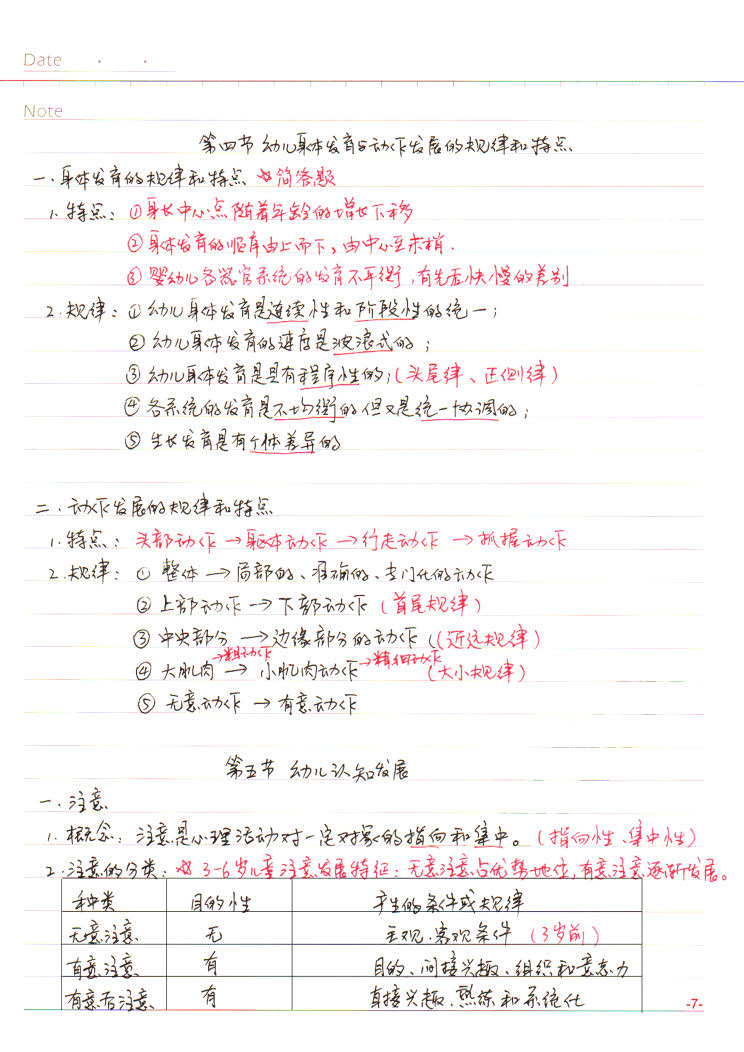 Date
Note
第四节 幼儿身体发育与动作发展的规律和特点
一.身体发育的规律和特点 ☆简答题
1.特点：①身长中心点随着年龄的增长下移
②身体发育的顺序由上而下，由中心至末梢.
③婴幼儿各器官系统的发育不平衡，有先后快慢的差别
2.规律：①幼儿身体发育是连续性和阶段性的统一；
②幼儿身体发育的速度是波浪式的；
③幼儿身体发育是具有程序性的；（头尾律、正侧律）
④各系统的发育是不均衡的但又是统一协调的；
⑤生长发育是有个体差异的
二.动作发展的规律和特点
1.特点：头部动作→躯体动作→行走动作→抓握动作
2.规律：①整体→局部的、准确的、专门化的动作
②上部动作→下部动作（首尾规律）
③中央部分→边缘部分的动作（（近远规律）
④大肌肉→粗动作→小肌肉动作→精细动作（大小规律）
⑤无意动作→有意动作
第五节 幼儿认知发展
一.注意
1.概念：注意是心理活动对一定对象的指向和集中。（指向性、集中性）
2.注意的分类：☆3-6岁儿童注意发展特征：无意注意占优势地位，有意注意逐渐发展。
种类 目的性 产生的条件或规律
无意注意 无 主观、客观条件（3岁前）
有意注意 有 目的、间接兴趣、组织和意志力
有意后注意 有 直接兴趣、熟练和系统化
-7-